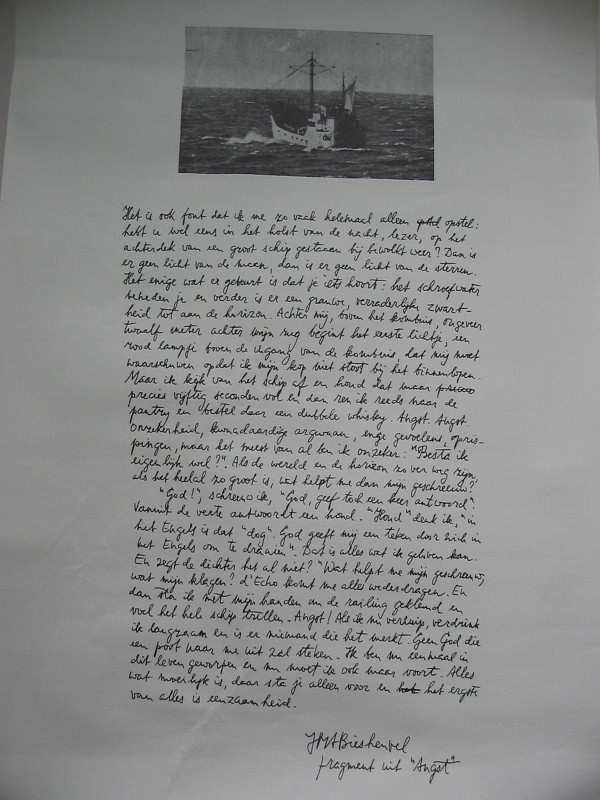 Het is ook fout dat ik me zo vaak helemaal alleen opstel:
hebt u wel eens in het holst van de nacht, lezer, op het
achterdek van een groot schip gestaan bij bewolkt weer? Dan is
er geen licht van de maan, dan is er geen licht van de sterren.
Het enige wat er gebeurt is dat je iets hoort: het schroefwater
beneden je en verder is er een grauwe, verraderlijke zwart-
heid tot aan de horizon. Achter mij, boven het kombuis, ongeveer
twaalf meter achter mijn rug begint het eerste lichtje, een
rood lampje boven de ingang van de kombuis, dat mij moet
waarschuwen opdat ik mijn kop niet stoot bij het binnenlopen.
Maar ik kijk van het schip af en houd dat maar
precies vijftig seconden vol en dan ren ik reeds naar de
pantry en bestel daar een dubbele whisky. Angst. Angst.
Onzekerheid, kwaadaardig argwaan, enge gevoelens, opris-
pingen, maar het meest van al ben ik onzeker: "Besta ik
eigenlijk wel?". Als de wereld en de horizon zo ver weg zijn,
als het heelal zo groot is, wat helpt me dan mijn geschreeuw?
"God!", schreeuw ik, "God, geef toch een keer antwoord".
Vanuit de verte antwoordt een hond. "Hond" denk ik, "in
het Engels is dat "dog". God geeft mij een teken door zich in
het Engels om te draaien". Dat is alles wat ik geloven kan.
En zegt de dichter het al niet? "Wat helpt me mijn geschreeuw,
wat mijn klagen? d'Echo komt me alles wederdragen. En
dan sta ik met mijn handen om de railing geklemd en
voel het hele schip trillen. Angst! Als ik nu verluip, verdrink
ik langzaam en is er niemand die het merkt. Geen God die
een poot naar me uit zal steken. Ik ben nu eenmaal in
dit leven geworpen en nu moet ik ook maar voort. Alles
wat moeilijk is, daar sta je alleen voor en het ergste
van alles is eenzaamheid.
JMA Biesheuvel
fragment uit "Angst"